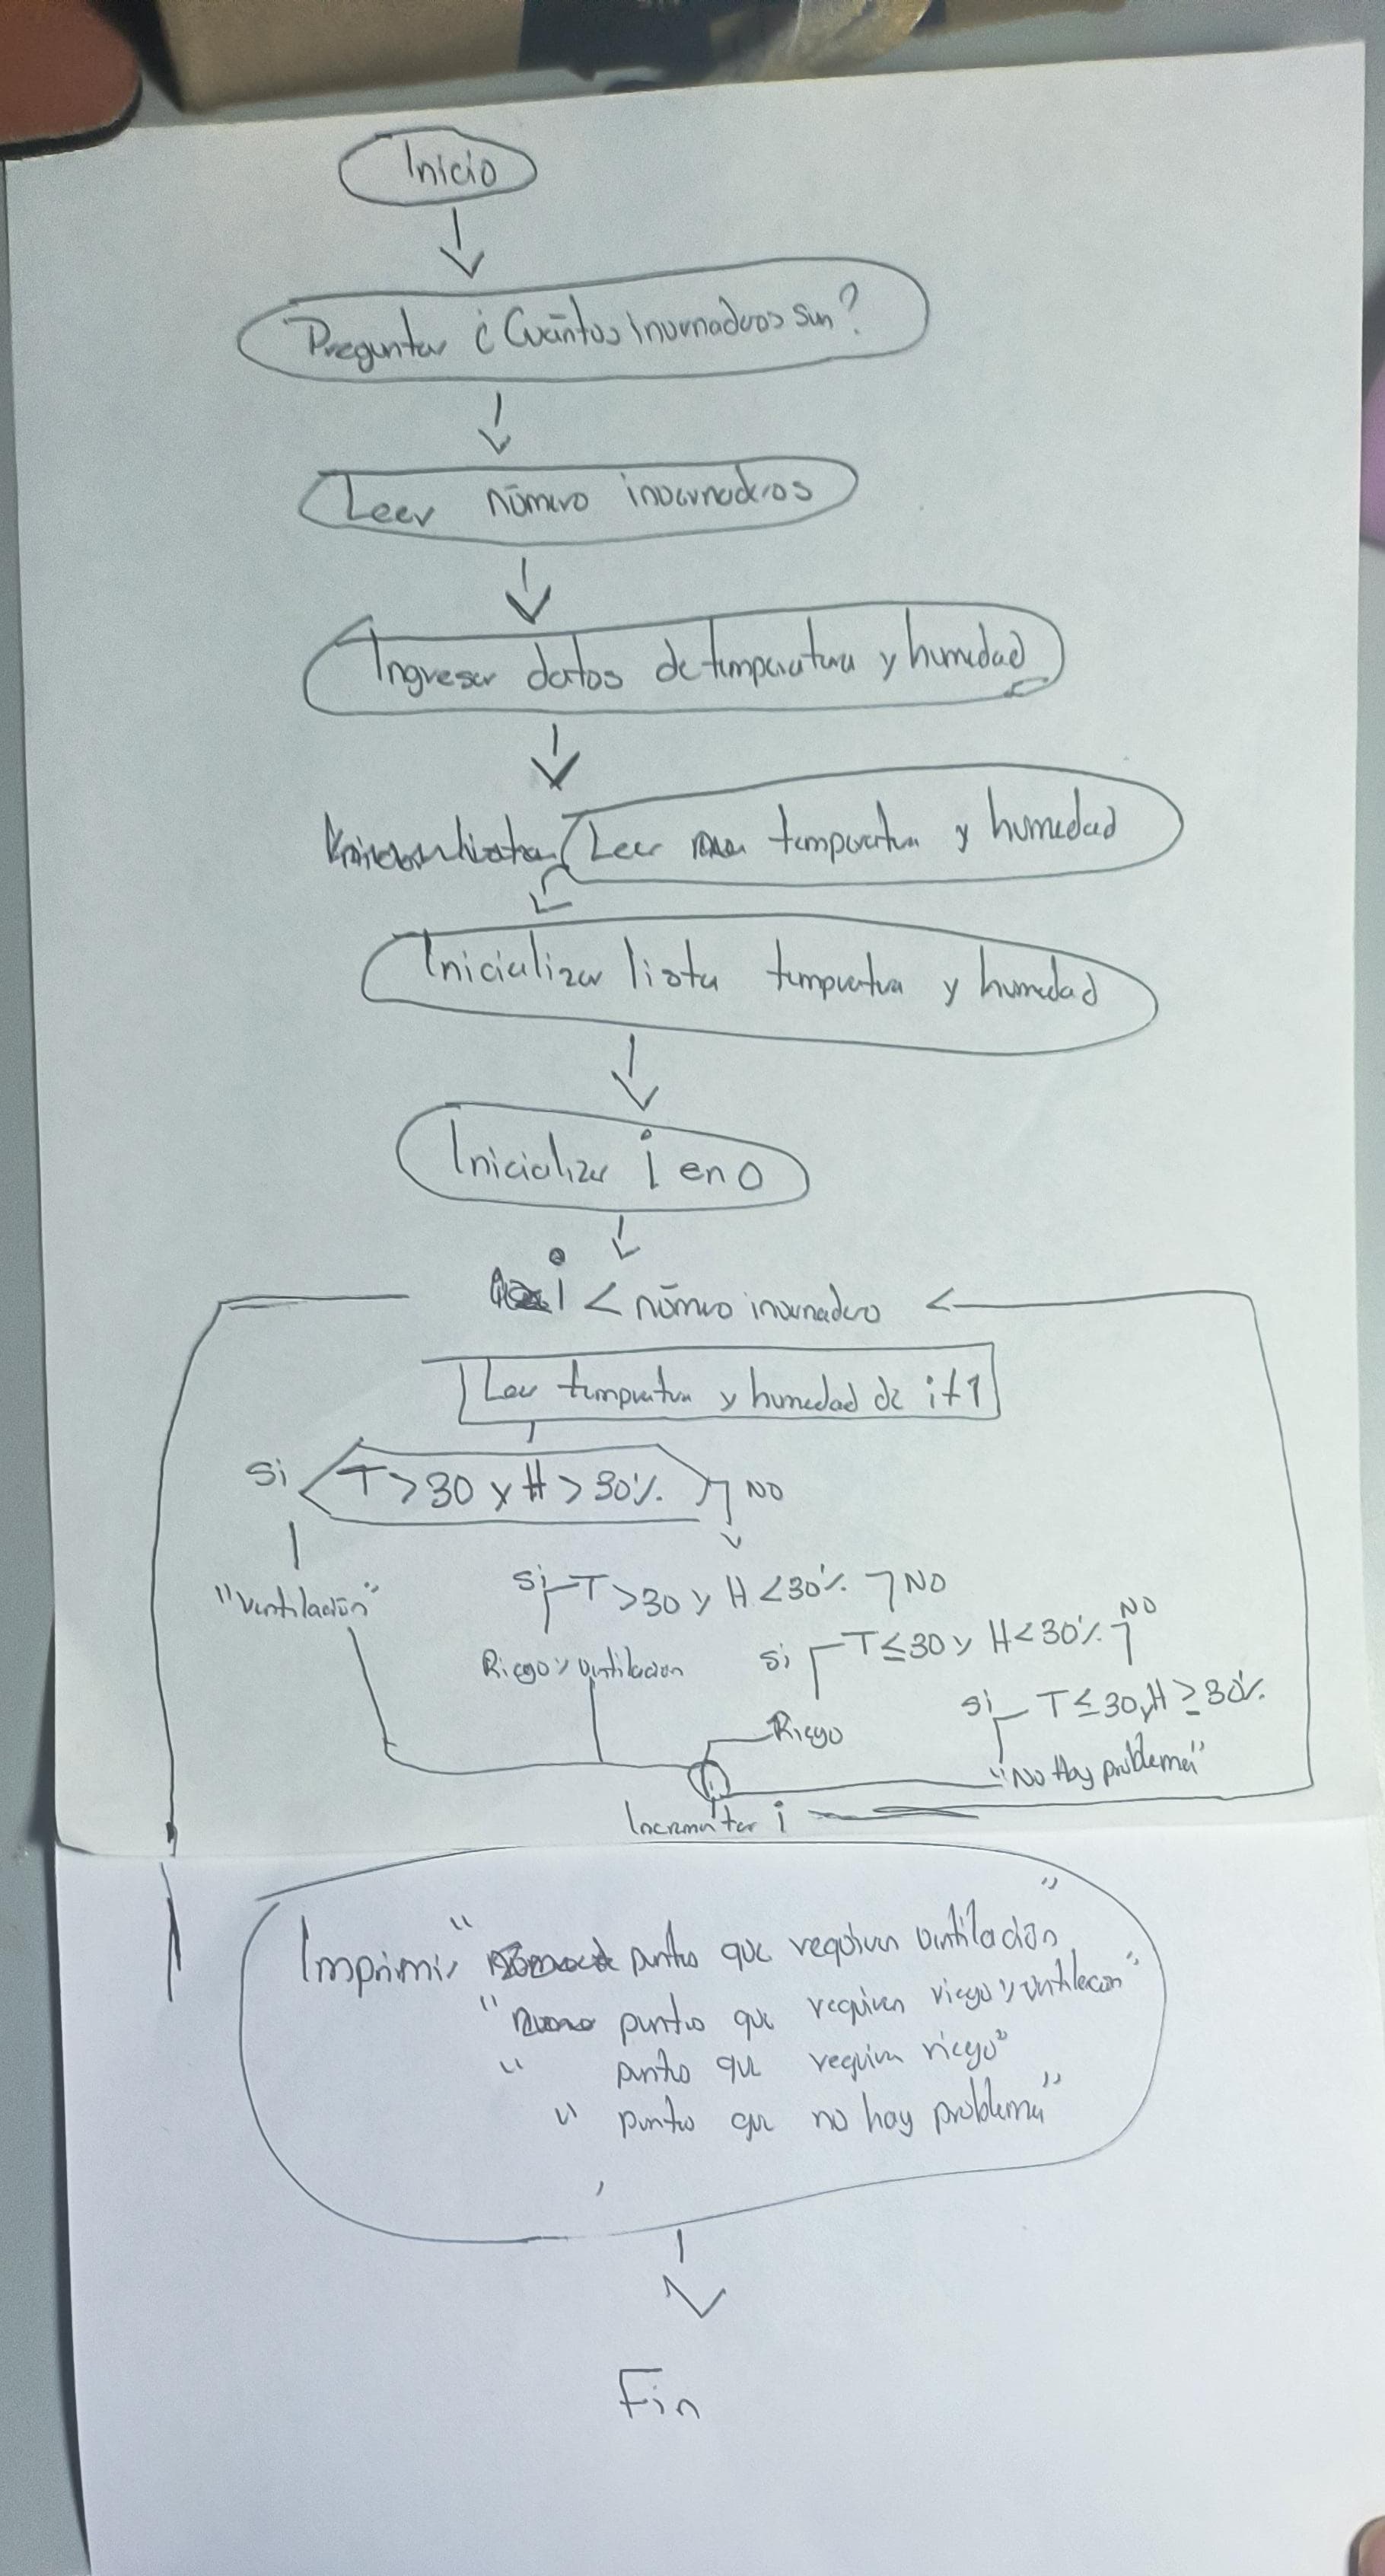 Inicio
Preguntar ¿Cuántos invernaderos son?
Leer número invernaderos
Ingresar datos de temperatura y humedad
Leer temperatura y humedad
Inicializar lista temperatura y humedad
Inicializar i en 0
i < número invernadero
Leer temperatura y humedad de i+1
Si T>30 y H>30% NO
"Ventilación"
Si T>30 y H<30% NO
Riego y ventilacion
Si T≤30 y H<30% NO
Riego
Si T≤30 y H≥30%
"No Hay problema"
Incrementar i
Imprimir " puntos que requieren ventilación"
" puntos que requieren riego y ventilacion"
" puntos que requieren riego"
" puntos que no hay problema"
Fin